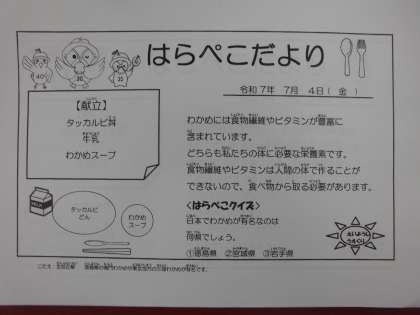 はらぺこだより
令和7年 7月 4日(金)
【献立】
タッカルビ丼
牛乳
わかめスープ
わかめには食物繊維やビタミンが豊富に
含まれています。
どちらも私たちの体に必要な栄養素です。
食物繊維やビタミンは人間の体で作ることが
できないので、食べ物から取る必要があります。
<はらぺこクイズ>
日本でわかめが有名なのは
何県でしょう。
①徳島県 ②宮城県 ③岩手県
タッカルビ
どん
わかめ
スープ